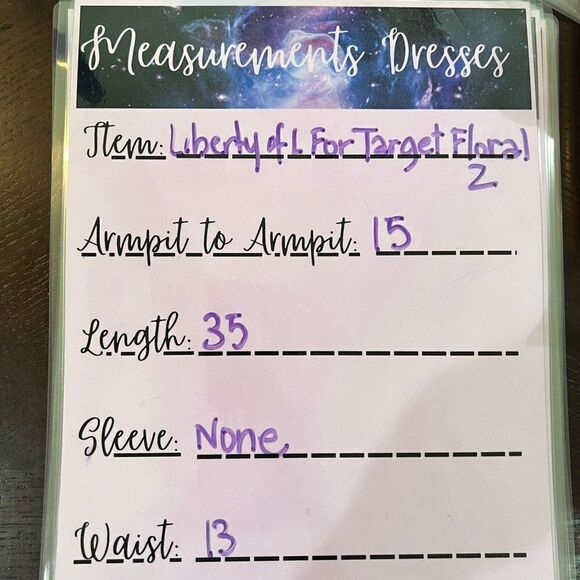 Measurements Dresses
Item: Liberty of L For Target Floral
2
Armpit to Armpit: 15
Length: 35
Sleeve: None
Waist: 13